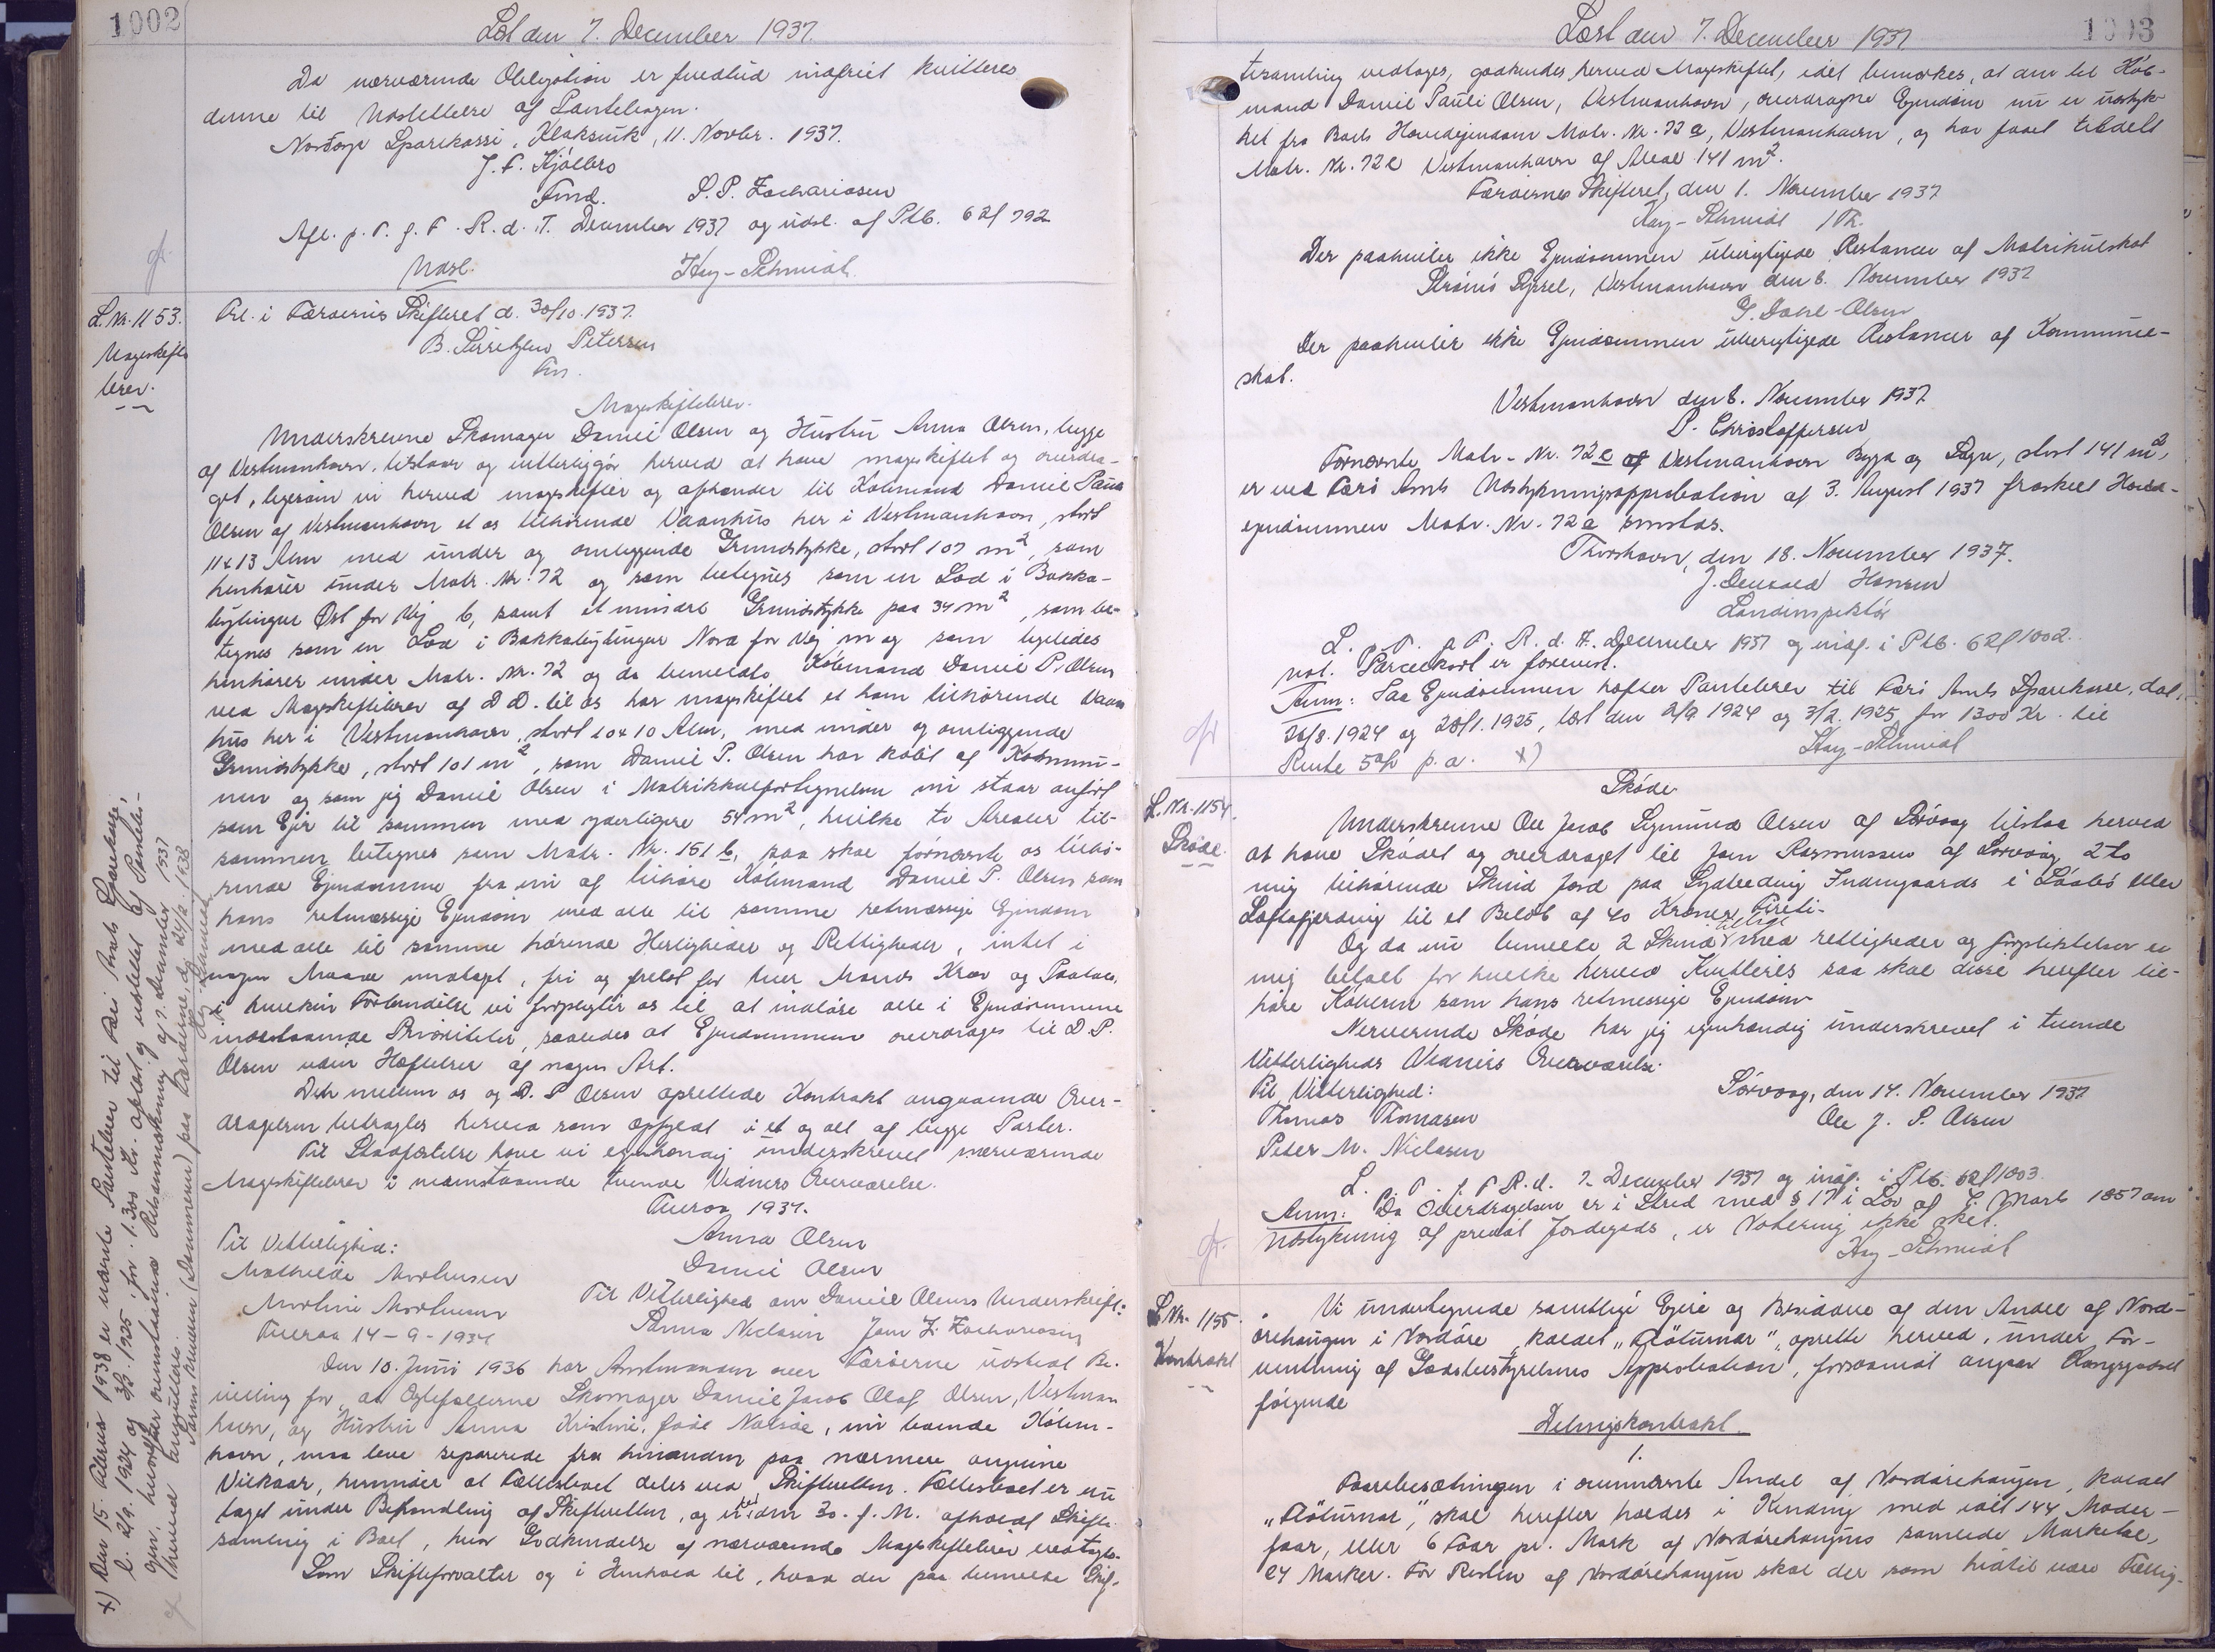 1002
Læst den 7. December 1937.
Da nærværende Obligation er fuldtud indfriet kvitteres
denne til Udslettelse af Pantebogen.
Nordoya Sparikassi, Klaksvik, 11. Novbr. 1937.
J. F. Kjølbro
Fmd. S. P. Zachariasen
Afl. p. T. f. F. R. d. 7. December 1937 og udsl. af Ptb. 62f 792
Udsl. Hay-Schmidt.
L. Nr. 1153.
Mageskifte
brev.
Prl. i Færøernes Skifteret d. 30/10. 1937.
B. Sørensen Petersen
Fm.
Mageskiftebrev.
Underskrevne Skomager Daniel Olsen og Hustru Anna Olsen, begge
af Vestmanhavn, tilstaar og vitterliggør herved at have mageskiftet og overdra-
get, ligesom vi herved mageskifter og afhænder til Købmand Daniel Pauli
Olsen af Vestmanhavn et os tilhørende Vaanhus her i Vestmanhavn, stort
11x13 Alen med under og omliggende Grundstykke, stort 107 m2, som
henhører under Matr. Nr. 72 og som betegnes som en Lod i Bakka-
bøylingur Øst for Vej b, samt et mindre Grundstykke paa 34 m2, som be-
tegnes som en Lod i Bakkabøylingur Nord for Vej m og som ligeledes
henhører under Matr. Nr. 72 og da bemeldte Købmand Daniel P. Olsen
ved Mageskiftebrev af D. D. til os har mageskiftet et ham tilhørende Vaan
hus her i Vestmanhavn, stort 10x10 Alen, med under og omliggende
Grundstykke, stort 101 m2, som Daniel P. Olsen har købt af Kommu-
nen og som jeg Daniel Olsen i Matrikkulfortegnelsen nu staar anført
som Ejer til sammen med yderligere 54 m2, hvilke to Arealer til-
sammen betegnes som Matr. Nr. 151 b, saa skal fornævnte os tilhø-
rende Ejendomme fra nu af tilhøre Købmand Daniel P. Olsen som
hans retmæssige Ejendom med alle til samme retmæssige Ejendom
med alle til samme hørende Herligheder og Rettigheder, intet i
nogen Maade undtagt, fri og frelst for hver Mands Krav og Paatale,
i hvilken Forbindelse vi forpligter os til at indløse alle i Ejendommene
indestaaende Prioriteter, saaledes at Ejendommen overdrages til D. P.
Olsen uden Hæftelser af nogen Art.
Den mellem os og D. P. Olsen oprettede Kontrakt angaaende Over-
dragelsen betragtes herved som opfyldt i et og alt af begge Parter.
Til Stadfæstelse have vi egenhændig underskrevet nærværende
Mageskiftebrev i nedenstaaende tvende Vidners Overværelse.
Tueraa 1937.
Til Vitterlighed: Anna Olsen
Mathilde Morthensen Daniel Olsen
Morthine Morthensen Til Vitterlighed om Daniel Olsens Underskrift:
Tueraa 14-9-1937 Sanna Niclasen Jom Z. Zachariasen
Den 10. Juni 1936 har Amtmanden over Færøerne udstedt Be-
villing for, at Ægtefællerne Skomager Daniel Jacob Olaf Olsen, Vestman
havn, og Hustru Anna Kristine, født Nolsøe, nu boende Køben-
havn, maa leve separerede fra hinanden paa nærmere angivne
Vilkaar, herunder at Fællesboet deles ved Skifteretten. Fællesboet er nu
taget under Behandling af Skifteretten, og ved den 30. f. M. afholdt Skifte-
samling i Boet, hvor Godkendelse af nærværende Mageskiftebrev vedtoges.
Som Skifteforvalter og i Henhold til, hvad der paa bemeldte Skif-
x) Den 15. Februar 1938 er nævnte Pantebrev til Færø Amts Sparekasse,
l. 2/9. 1924 og 3/2. 1925 for 1300 Kr. aflæst og udslettet af Pantebo-
gen, hvorefter ovenstaaende Retsanmærkning af 7. December 1937
herved kvitteres.
1003
Læst den 7. December 1937
tesamling vedtoges, godkendes herved Mageskiftet, idet bemærkes, at den til Køb-
mand Daniel Pauli Olsen, Vestmanhavn, overdragne Ejendom nu er udstyk-
ket fra Boets Hovedejendom Matr. Nr. 72 a, Vestmanhavn, og har faaet tildelt
Matr. Nr. 72 e Vestmanhavn af Areal 141 m2.
Færøernes Skifteret, den 1. November 1937
Hay-Schmidt /Th.
Der paahviler ikke Ejendommen uberigtigede Restancer af Matrikulskat
Strømø Syssel, Vestmanhavn den 6. November 1937
G. Dahl-Olsen
Der paahviler ikke Ejendommen uberigtigede Restancer af Kommune-
skat.
Vestmanhavn den 6. November 1937
P. Christoffersen
Fornævnte Matr. Nr. 72 e af Vestmanhavn Bygd og Sogn, stort 141 m2,
er ved Færø Amts Udstykningsapprobation af 3. August 1937 fraskilt Hoved-
ejendommen Matr. Nr. 72 a smstds.
Thorshavn, den 18. November 1937.
J. Hansen
Landinspektør
L. p. T. f. F. R. d. 7. December 1937 og indf. i Ptb. 62f 1002.
not. Parcelkort er forevist.
Anm: Paa Ejendommen hæfter Pantebrev til Færø Amts Sparekasse, dat.
26/8. 1924 og 28/1. 1925, læst den 2/9 1924 og 3/2. 1925 for 1300 Kr. til
Rente 5% p.a. x) Hay-Schmidt
L. Nr. 1154.
Skøde.
Skøde
Underskrevne Ole Jacob Sigmund Olsen af Sørvaag tilstaa herved
at have Skødet og overdraget til Jom Rasmussen af Sørvaag 2 to
mig tilhørende Skind Jord paa Sydbedrig Indengaards i Løvtes eller
Loftafjerding til et Beløb af 40 Kroner Fireti-
Og da nu bemelte 2 Skind med rettigheder og forpliktelser er
mig betalt for hvilke herved Kvitteres saa skal disse herefter til-
høre Køberen som hans retmessige Ejendom
Nerverende Skøde har jeg egenhændig underskrevet i tvende
Vitterligheds Vidners Overværelse.
Til Vitterlighed: Sørvaag, den 14. November 1937
Thomas Thomasen Ole J. S. Olsen
Peder M. Niclasen
L. p. T. f. F. R. d. 7. December 1937 og indf. i Ptb. 62f 1003.
Anm: Da Overdragelsen er i Strid med § 17 i Lov af 6. Marts 1857 om
Udstykning af predial Jordegods, er Notering ikke sket.
Hay-Schmidt
L. Nr. 1155.
Kontrakt
Vi undertegnede samtlige Ejere og Besiddere af den Andel af Nord-
ørehaugen i Nordøre, kaldet "Fløturnar", oprette herved, under For-
ventning af Lodsbestyrelsens Approbation, forsaavidt angaar Kongsgodset
følgende
Delingskontrakt.
1.
Faarebesætningen i ovennævnte Andel af Nordørehaugen, kaldet
"Fløturnar", skal herefter holdes i Kending med ialt 144 Moder-
faar, eller 6 Faar pr. Mark af Nordørehaugens samlede Marketal,
24 Marker. For Resten af Nordørehaugen skal der som hidtil være Fællig-